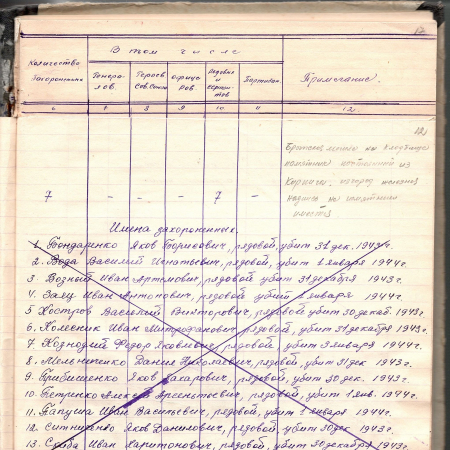 12
Количество захоронено
В том числе
Примечание.
Генера лов.
Героев Сов.Союза
Офице ров
Рядовых и сержан тов
Партизан
6 7 8 9 10 11 12.
Братская могила на кладбище
памятник
из
надпись на памятнике
имеется
7 – – – 7 –
Имена захороненных.
1. Бондаренко Яков Борисович, рядовой, убит 31 дек. 1943 г.
2. Вода Василий Игнатьевич, рядовой, убит 1 января 1944 г.
3. Возный Иван Артемович, рядовой, убит 31 декабря 1943 г.
4. Заяц Иван Антонович, рядовой, убит января 1944 г.
5 Хостров Василий Викторович, рядовой, убит 30 декаб. 1943 г.
6. Колесник Иван Митрофанович рядовой, убит 31 декабря 1943 г.
7. Федор Яковлевич, рядовой, убит 3 января 1944 г.
8. Мельниченко Данил Николаевич, рядовой, убит 31 дек 1943 г.
9. Грибиниченко Яков Захарович, рядовой, убит 30 дек. 1943 г.
10. Петренко Алексей Арсентьевич, рядовой, убит 1 янв. 1944 г.
11. Папуша Иван Васильевич, рядовой, убит 1 января 1944 г.
12. Ситниченко Яков Данилович, рядовой, убит 30 дек 1943 г.
13. Иван Харитонович, рядовой, убит 30 декабря 1943 г.